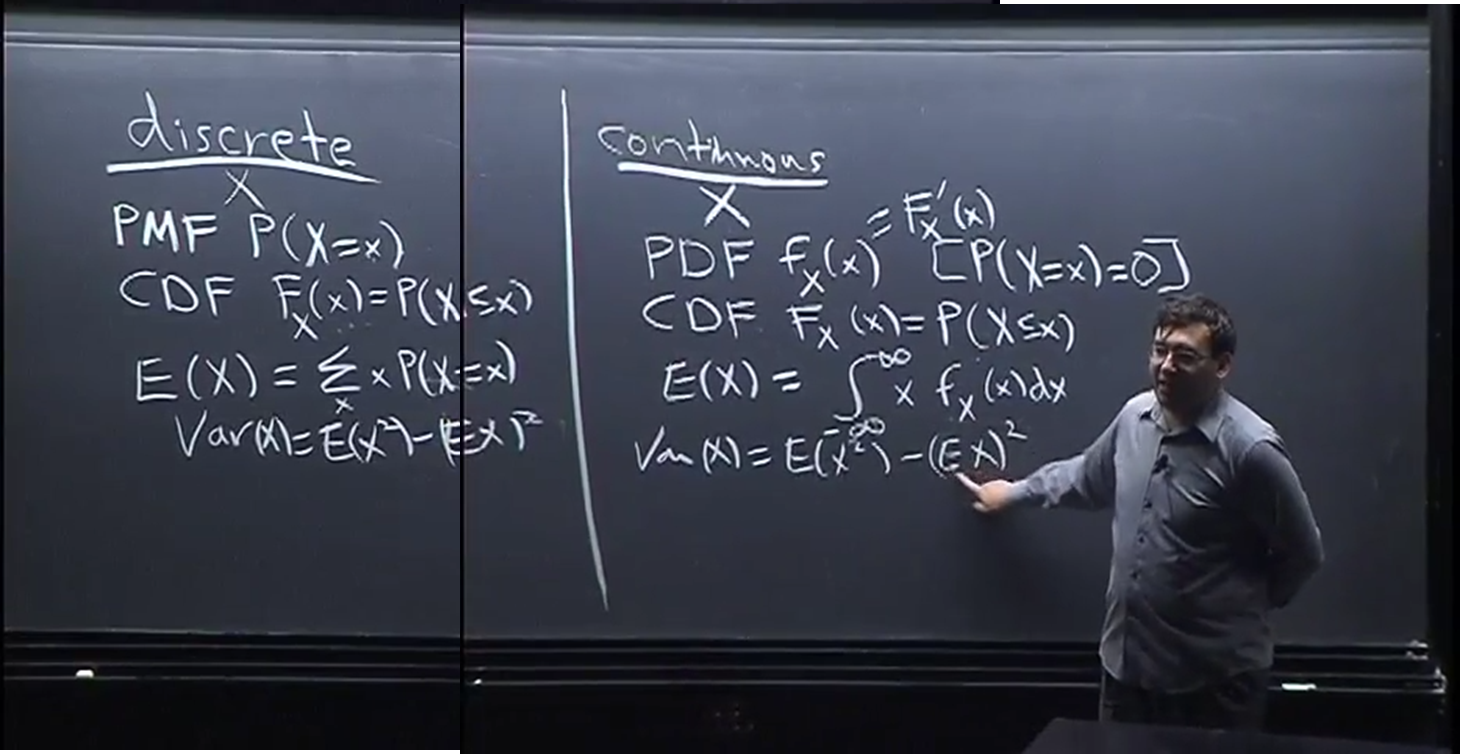 discrete
X
PMF P(X=x)
CDF F_X(x)=P(X≤x)
E(X) = Σ_x x P(X=x)
Var(X)=E(X²)-(EX)²
continuous
X
PDF f_X(x) = F_X'(x) [P(X=x)=0]
CDF F_X(x)=P(X≤x)
E(X) = ∫_{-∞}^{∞} x f_X(x)dx
Var(X)=E(X²)-(EX)²